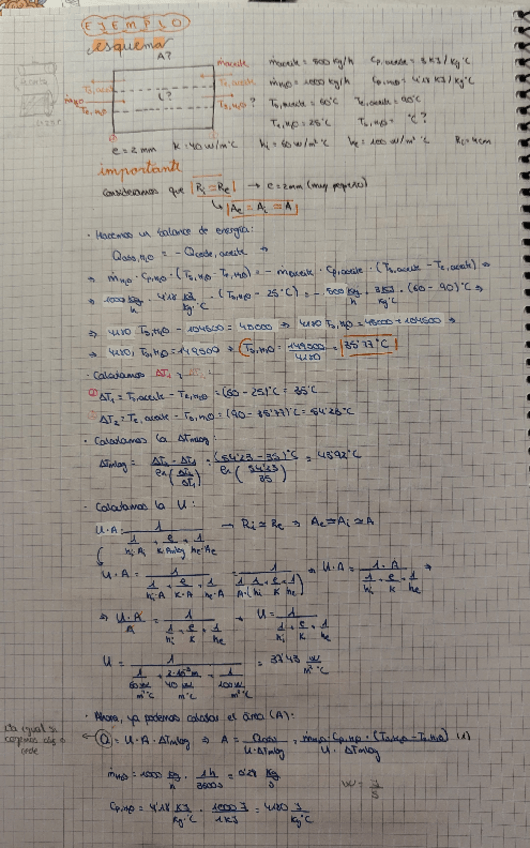 EJEMPLO
esquema
A?
ṁaceite ṁaceite = 500 kg/h Cp,aceite = 3 KJ/kg°C
Ts,aceite Te,aceite ṁH2O = 1000 kg/h Cp,H2O = 4'18 KJ/kg°C
ṁH2O U? Ts,H2O? Ts,aceite = 60°C Te,aceite = 90°C
Te,H2O Te,H2O = 25°C Ts,H2O = °C?
e = 2 mm K = 40 W/m°C hi = 60 W/m²°C he = 100 W/m²°C Ri = 4cm
importante
Consideramos que Ri ≈ Re → e = 2mm (muy pequeño)
↳ Ae = Ai ≈ A
· Hacemos un balance de energía:
Qabs,H2O = - Qcede,aceite ⇒
⇒ ṁH2O · Cp,H2O · (Ts,H2O - Te,H2O) = - ṁaceite · Cp,aceite · (Ts,aceite - Te,aceite) ⇒
⇒ 1000 kg/h · 4'18 KJ/kg·°C · (Ts,H2O - 25°C) = - 500 kg/h · 3 KJ/kg°C · (60 - 90)°C ⇒
⇒ 4180 Ts,H2O - 104500 = 45000 ⇒ 4180 Ts,H2O = 45000 + 104500 ⇒
⇒ 4180 Ts,H2O = 149500 ⇒ Ts,H2O = 149500/4180 = 35'77°C
· Calculamos ΔT1 y
① ΔT1 = Ts,aceite - Te,H2O = (60 - 25)°C = 35°C
② ΔT2 = Te,aceite - Ts,H2O = (90 - 35'77)°C = 54'23°C
· Calculamos la ΔTmlog:
ΔTmlog = (ΔT2 - ΔT1)/ln(ΔT2/ΔT1) = (54'23 - 35)°C/ln(54'23/35) = 43'92°C
· Calculamos la U:
U·A = 1/(1/(hi·Ai) + e/(K·Amlog) + 1/(he·Ae)) → Ri ≈ Re ⇒ Ae ≈ Ai ≈ A
U·A = 1/(1/(hi·A) + e/(K·A) + 1/(he·A)) = 1/(1/A·(1/hi + e/K + 1/he)) ⇒ U·A = 1·A/(1/hi + e/K + 1/he) ⇒
⇒ U·A/A = 1/(1/hi + e/K + 1/he) → U = 1/(1/hi + e/K + 1/he)
U = 1/(1/(60 W/m²°C) + 2·10⁻³m/(40 W/m°C) + 1/(100 W/m²°C)) = 37'43 W/m²°C
· Ahora, ya podemos calcular el área (A):
da igual si
cogemos abs o
cede
Q = U·A·ΔTmlog ⇒ A = Qabs/(U·ΔTmlog) = ṁH2O·Cp,H2O·(Ts,H2O - Te,H2O)/(U·ΔTmlog) (1)
ṁH2O = 1000 kg/h · 1h/3600s = 0'27 kg/s
W = J/s
Cp,H2O = 4'18 KJ/kg·°C · 1000 J/1KJ = 4180 J/kg°C